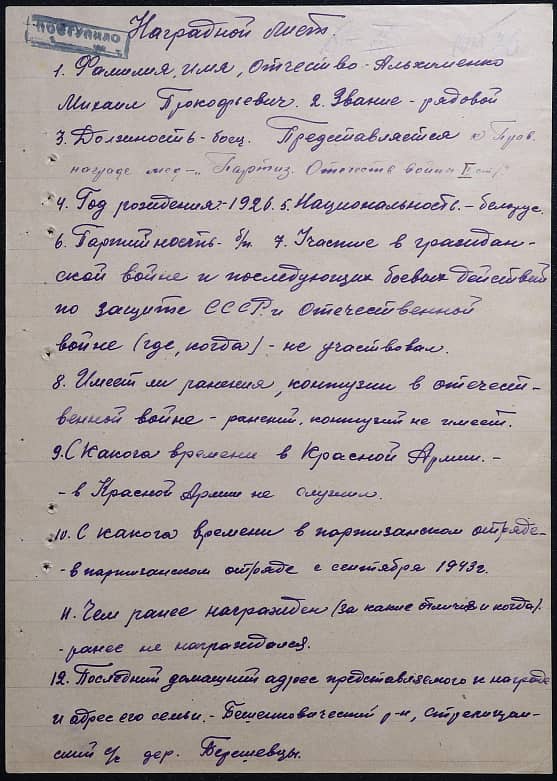 ПОСТУПИЛО
Наградной лист.
1. Фамилия, имя, отчество - Альхименко
Михаил Прокофьевич. 2. Звание - рядовой
3. Должность - боец. Представляется к Прав.
награде мед - "Партиз. Отечеств войны II ст."
4. Год рождения - 1926. 5. Национальность. - белорус.
6. Партийность - б/п. 7. Участие в граждан-
ской войне и последующих боевых действий
по защите СССР и Отечественной
войне (где, когда) - не участвовал.
8. Имеет ли ранения, контузии в отечест-
венной войне - ранений, контузий не имеет.
9. С какого времени в Красной Армии. -
- в Красной Армии не служил.
10. С какого времени в партизанском отряде -
- в партизанском отряде с сентября 1943 г.
11. Чем ранее награжден (за какие отличия и когда).
- ранее не награждался.
12. Последний домашний адрес представляемого к награде
и адрес его семьи. - Бешенковический р-н, Стрелищан-
ский с/с дер.